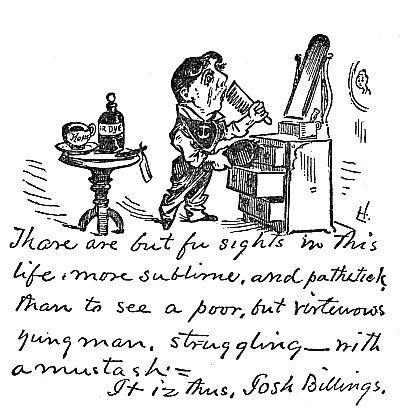 Hope
IR DYE
H.
Thare are but fu sights in this
life, more sublime, and pathetick,
than to see a poor, but virtewous
yung man, struggling—with
a mustash=
It iz thus, Josh Billings.